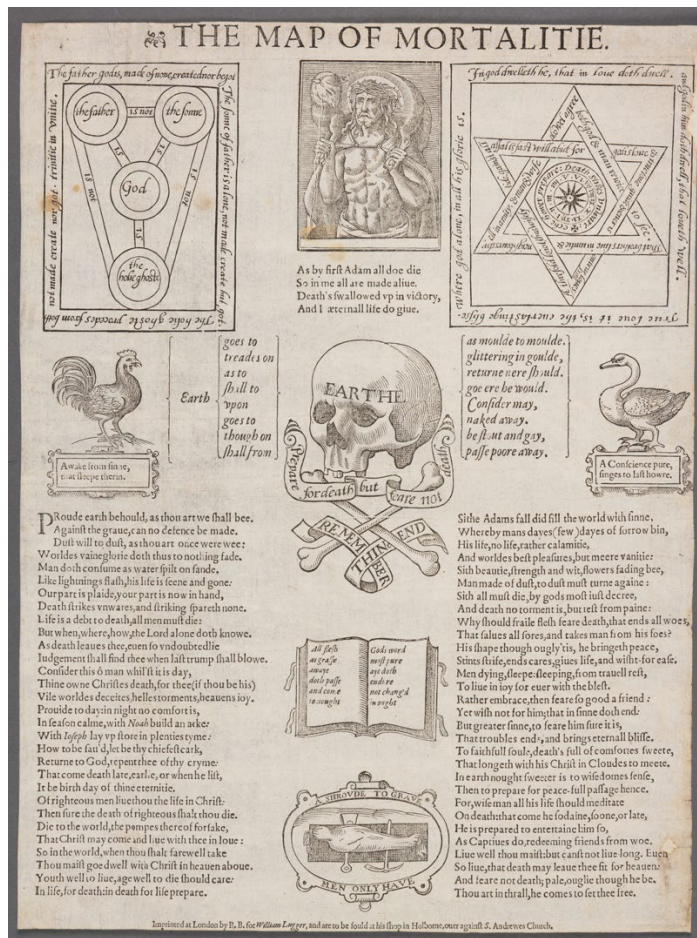 THE MAP OF MORTALITIE.
The father godis, made of none, created nor begot
The sonne of father is alone, not made create but got.
The holie ghoste procedes from both
not made create nor got. trinitie in vnitie.
the father
is not
the sonne
is
is
is not
is not
God
is
the holie ghoste
As by first Adam all doe die
So in me all are made aliue.
Death's swallowed vp in victory,
And I æternall life do giue.
In god dwelleth he, that in loue doth dwell.
True loue it is, the euerlastinge blisse.
where god alone, in all his glorie is.
Awake from sinne,
not sleepe therin.
Earth
goes to
treades on
as to
shall to
vpon
goes to
though on
shall from
EARTHE
Prepare
for death but
feare not
REMEM
BER
THINE END
as moulde to moulde.
glittering in goulde,
returne nere should.
goe ere he would.
Consider may,
naked away.
be stout and gay,
passe poore away.
A Conscience pure,
singes to last howre.
PRoude earth behould, as thou art we shall bee.
Against the graue, can no defence be made.
Dust will to dust, as thou art once were wee:
Worldes vaineglorie doth thus to nothing fade.
Man doth consume as water spilt on sande.
Like lightnings flash, his life is seene and gone:
Our part is plaide, your part is now in hand,
Death strikes vnwares, and striking spareth none.
Life is a debt to death, all men must die:
But when, where, how, the Lord alone doth knowe.
As death leaues thee, euen so vndoubtedlie
Iudgement shall find thee when last trump shall blowe.
Consider this ô man whilst it is day,
Thine owne Christes death, for thee (if thou be his)
Vile worldes deceites, helles torments, heauens ioy.
Prouide to day: in night no comfort is,
In season calme, with Noah build an arke:
With Ioseph lay vp store in plenties tyme:
How to be sau'd, let be thy chiefest cark,
Returne to God, repent thee of thy cryme:
That come death late, earlie, or when he list,
It be birth day of thine eternitie.
Of righteous men liue thou the life in Christ:
Then sure the death of righteous shalt thou die.
Die to the world, the pompes thereof forsake,
That Christ may come and liue with thee in loue:
So in the world, when thou shalt farewell take
Thou maist goe dwell with Christ in heauen aboue.
Youth well to liue, age well to die should care:
In life, for death: in death for life prepare.
All flesh
as grasse
awaye
doth passe
and come
to nought
Gods word
most pure
aye doth
endure
not chang'd
in ought
A SHROVDE TO GRAVE
MEN ONLY HAVE
Sithe Adams fall did fill the world with sinne,
Whereby mans dayes (few) dayes of sorrow bin,
His life, no life, rather calamitie,
And worldes best pleasures, but meere vanitie:
Sith beautie, strength and wit, flowers fading bee,
Man made of dust, to dust must turne againe:
Sith all must die, by gods most iust decree,
And death no torment is, but rest from paine:
Why should fraile flesh feare death, that ends all woes,
That salues all sores, and takes man from his foes?
His shape though ougly'tis, he bringeth peace,
Stints strife, ends cares, giues life, and wisht-for ease.
Men dying, sleepe: sleeping, from trauell rest,
To liue in ioy for euer with the blest.
Rather embrace, then feare so good a friend:
Yet wish not for him; that in sinne doth end:
But greater sinne, to feare him sure it is,
That troubles ends, and brings eternall blisse.
To faithfull soule, death's full of comfortes sweete,
That longeth with his Christ in Cloudes to meete.
In earth nought sweeter is to wisedomes sense,
Then to prepare for peace-full passage hence.
For, wise man all his life should meditate
On death: that come he sodaine, soone, or late,
He is prepared to entertaine him so,
As Captiues do, redeeming friends from woe.
Liue well thou maist: but canst not liue long. Euen
So liue, that death may leaue thee fit for heauen:
And feare not death; pale, ouglie though he be.
Thou art in thrall, he comes to set thee free.
Imprinted at London by R. B. for William Lugger, and are to be sould at his shop in Holborne, ouer against S. Andrewes Church.